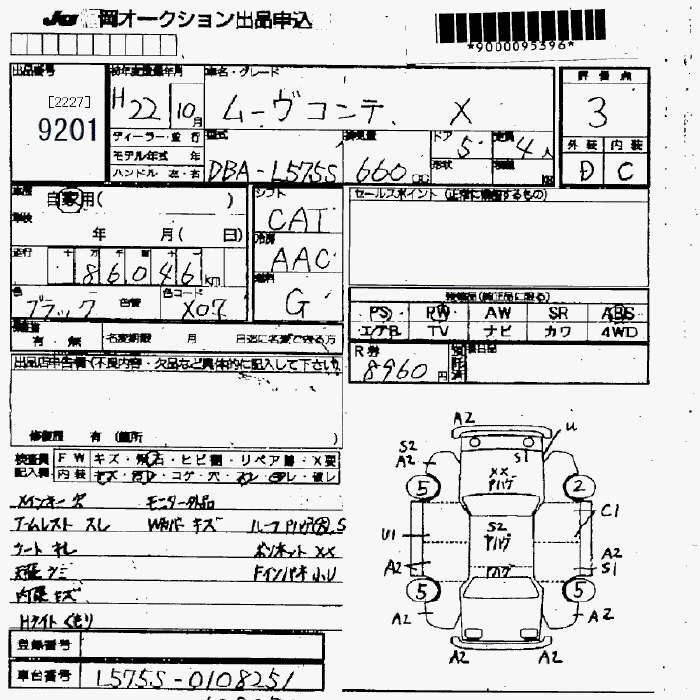 JU 岡オークション出品申込
*9000095396*
出品番号
[2227]
9201
初年度登録年月
H22 10月
車名・グレード
ムーヴコンテ X
評価点
3
外装 内装
D C
ディーラー・並行
モデル年式 年
ハンドル 左・右
型式
DBA-L575S
排気量
660
ドア
5
形状
定員
4人
車歴
自家用( )
車検
年 月( 日)
走行 十 万 千 百 十 一
86046km
色
ブラック
色替
色コード
X07
シフト
CAT
冷房
AAC
燃料
G
セールスポイント (正常に機能するもの)
装備品(純正品に限る)
PS RW AW SR ABS
エアB TV ナビ カワ 4WD
有・無
名変期限 月 日迄に名変できる方
R券
8960円
出品店申告欄(不良内容・欠品など具体的に記入して下さい)
修復歴 有 (箇所 )
検査員記入欄
FW キズ・飛石・ヒビ割・リペア跡・X要
内装 キズ・汚レ・コゲ・穴・スレ・切レ・破レ
メインキー欠 モニター外品
アームレスト スレ Wカバー キズ ルーフ Pハゲ大, S
シート キレ ボンネット XX
天張シミ Fインパネ小U
内張キズ
Hライトくもり
A2
U
S2
A2
S1
XX
Pハゲ
5
2
C1
U1
S2
Pハゲ
A2
A2
S1
Pハゲ
5
5
A2
A2
A2
A2
登録番号
車台番号
L575S-0108251